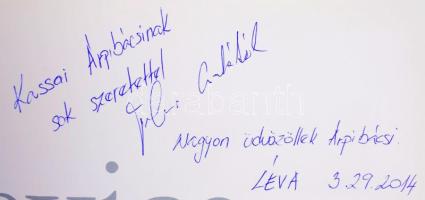 Kassai Árpibácsinak
sok szeretettel
Nagyon üdvözöllek Árpibácsi.
LÉVA 3.29.2014